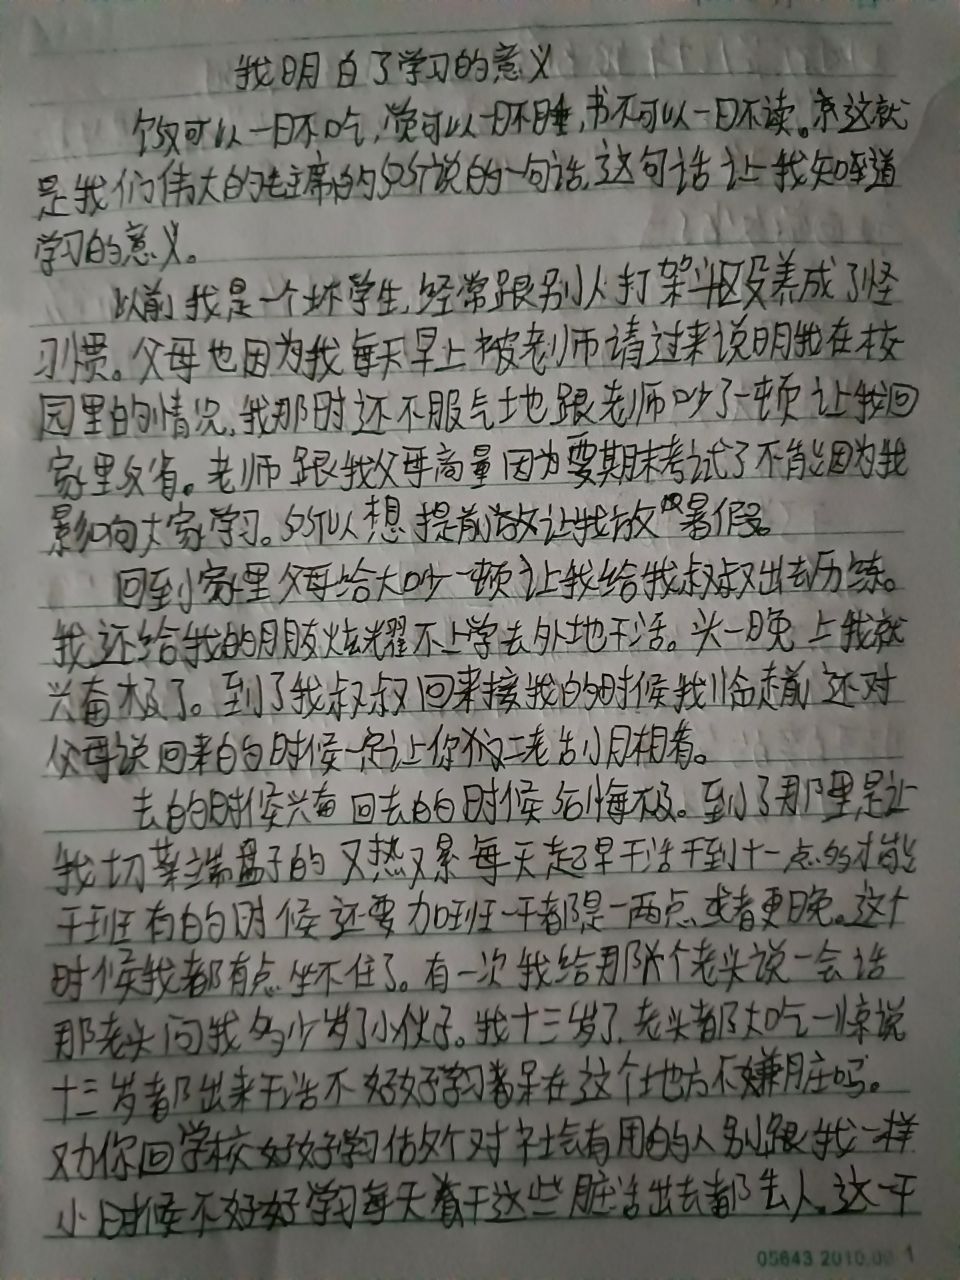 我明白了学习的意义
饭可以一日不吃，觉可以一日不睡，书不可以一日不读。这就
是我们伟大的毛主席的所说的一句话，这句话让我知道
学习的意义。
以前我是一个坏学生，经常跟别人打架斗殴养成了怪
习惯。父母也因为我每天早上被老师请过来说明我在校
园里的情况，我那时还不服气地跟老师吵了一顿让我回
家里反省。老师跟我父母商量因为要期末考试了不能因为我
影响大家学习。所以想提前放让我放暑假。
回到家里父母给大吵一顿让我给我叔叔出去历练。
我还给我的朋友炫耀不上学去外地干活。头一晚上我就
兴奋极了。到了我叔叔回来接我的时候我临走前还对
父母说回来的时候一定让你们二老刮目相看。
去的时候兴奋回去的时候后悔极。到了那里是让
我切菜端盘子的又热又累每天起早干活干到十一点多才能
干班有的时候还要加班一干都是一两点或者更晚。这个
时候我都有点坐不住了。有一次我给那个老头说一会话
那老头问我多少岁了小伙子。我十三岁了，老头都大吃一惊说
十三岁都出来干活不好好学习都呆在这个地方不嫌脏吗。
劝你回学校好好学习做个对社会有用的人别跟我一样
小时候不好好学习每天都干这些脏活出去都丢人。这一干
05643 2010.00 1